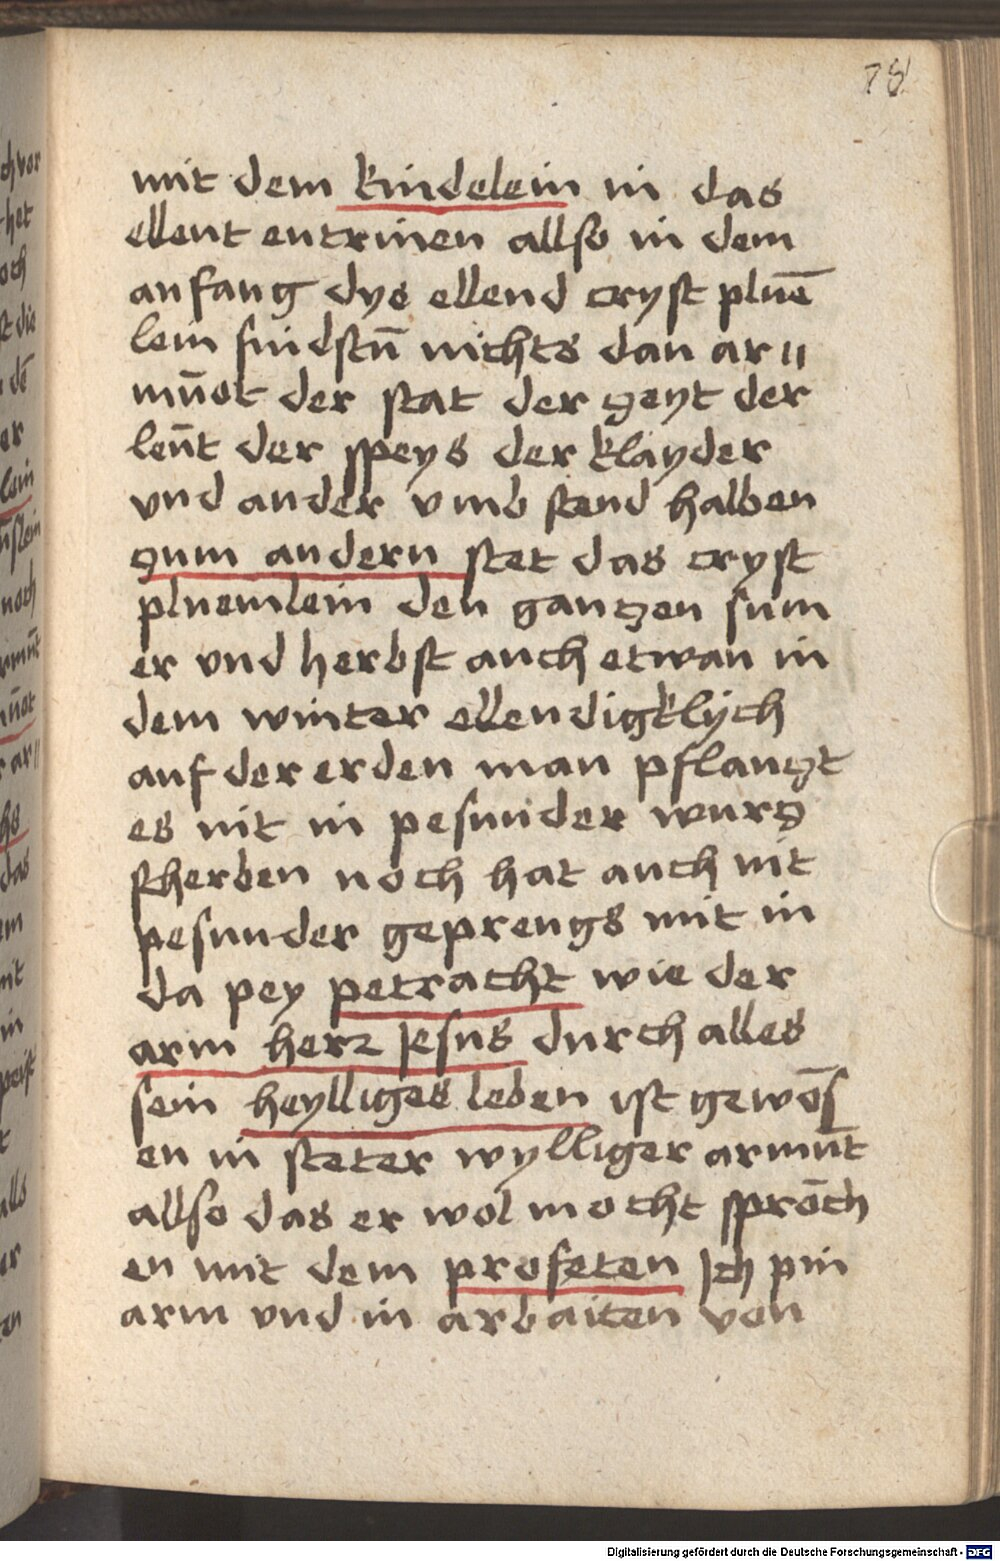 78
mit dem kindelein in das
ellent entrinen allso in dem
anfang dys ellend cryst plūe
lein findstū nichts dan ar〃
mūot der stat der zeyt der
leūt der speys der klayder
vnd ander vmb stend halben
zum andern stet das cryst
pluemlein den gantzen sum
er vnd herbst auch etwan in
dem winter ellendigklych
auf der erden man pflanzt
es nit in pesunder wurz
scherben noch hat auch nit
pesunder geprengs mit in
da pey petracht wie der
arm herz Jesus durch alles
sein heylliges leben ist gewēs
en in steter wylliger armūt
allso das er wol mocht sprēch
en mit dem profeten Ich pin
arm vnd in arbaiten von
Digitalisierung gefördert durch die Deutsche Forschungsgemeinschaft - DFG